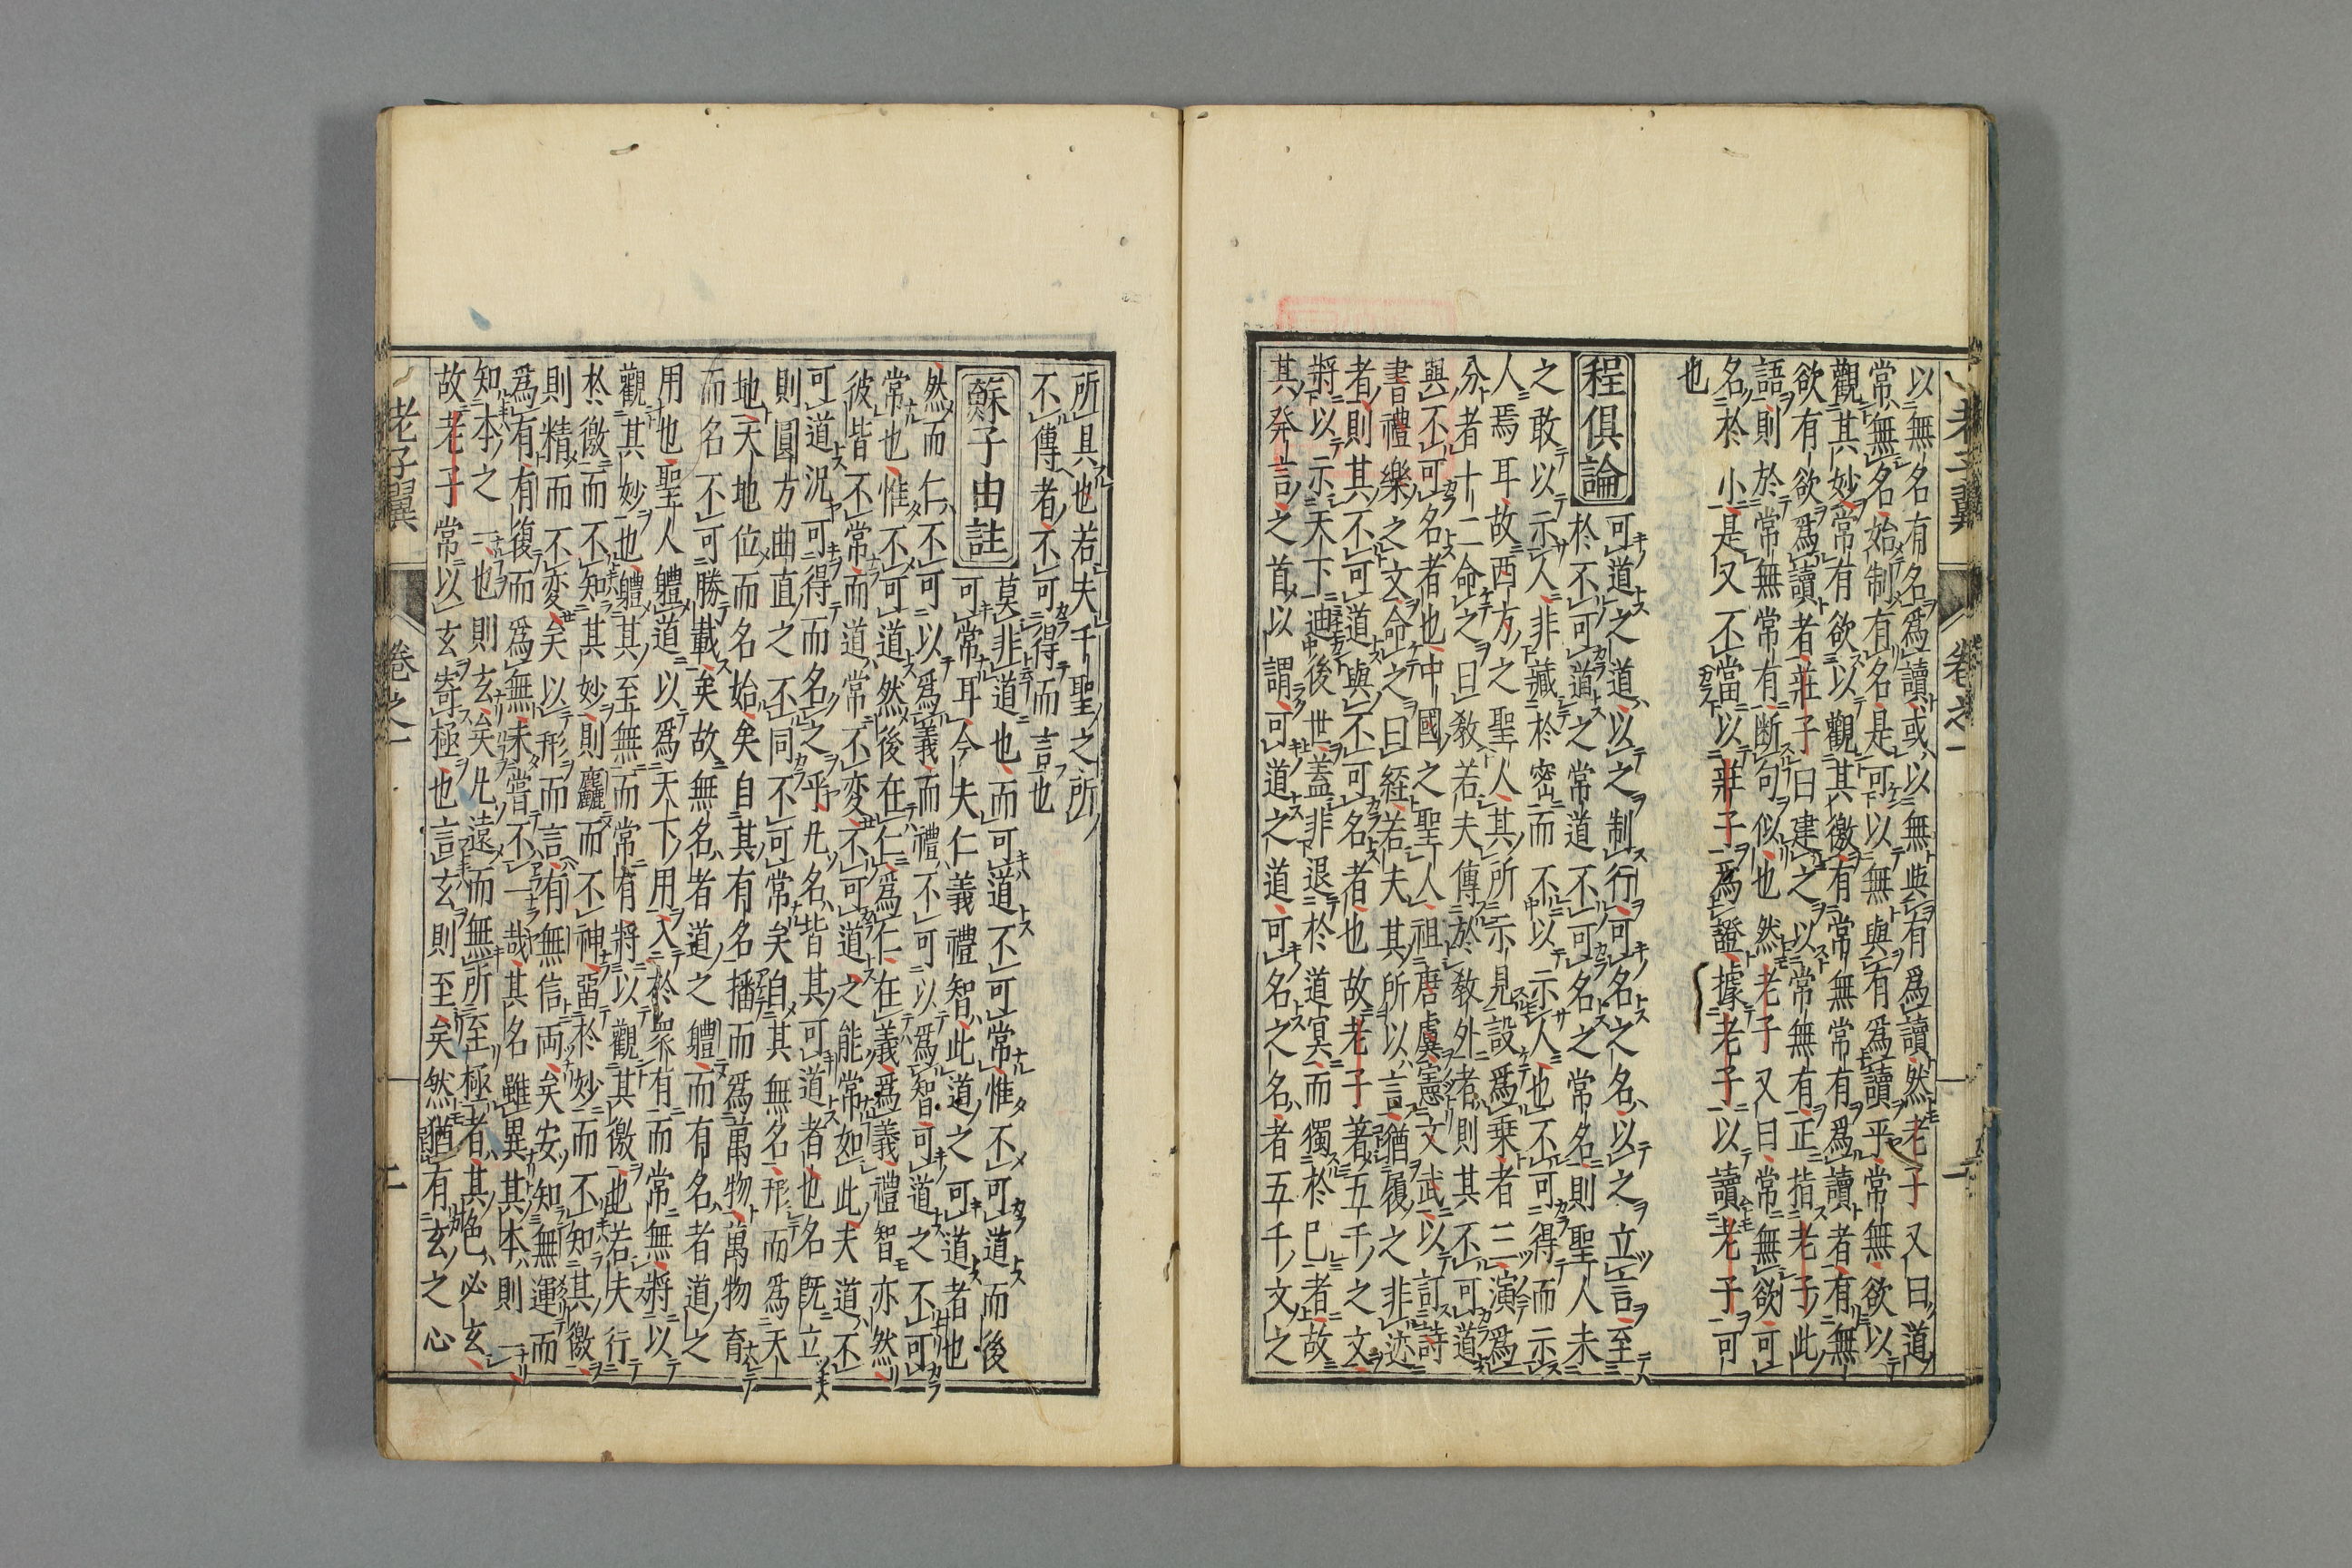 老子翼 卷之一 二
以無名有名爲讀或以無與有爲讀然老子又曰道
常無名始制有名是可以無與有爲讀乎常無欲以
觀其妙常有欲以觀其徼有常無常有爲讀者有無
欲有欲爲讀者莊子曰建之以常無有正指老子此
語則於常無常有斷句似也然老子又曰常無欲可
名於小是又不當以莊子爲證據老子以讀老子可
也
可道之道以之制行可名之名以之立言至
程俱論
於不可道之常道不可名之常名則聖人未
之敢以示人非藏於密而不以示人也不可得而示
人焉耳故西方之聖人其所示見設爲乘者三演爲
分者十二命之曰敎若夫傳於敎外者則其不可道
與不可名者也中國之聖人祖唐虞憲文武以訂詩
書禮樂之文命之曰經若夫其所以言猶履之非迹
者則其不可道與不可名者也故老子著五千之文
將以示天下迪後世蓋非退於道冥而獨於已者故
其発言之首以謂可道之道可名之名者五千文之
所具也若夫千聖之所
不傳者不可得而言也
莫非道也而可道不可常惟不可道而後
蘇子由註
可常耳今夫仁義禮智此道之可道者也
然而仁不可以爲義而禮不可以爲智可道之不可
常也惟不可道然後在仁爲仁在義爲義禮智亦然
彼皆不常而道常不変不可道之能常如此夫道不
可道況可得而名之乎凡名皆其可道者也名既立
則圓方曲直之不同不可常矣自其無名形而爲天
地天地位而名始矣自其有名播而爲萬物萬物育
而名不可勝載矣故無名者道之體而有名者道之
用也聖人體道以爲天下用入於衆有而常無將以
觀其妙也體其至無而常有將以觀其徼也若夫行
於徼而不知其妙則麤而不神留於妙而不知其徼
則精而不変矣以形而言有無信両矣安知無運而
爲有有復而爲無未嘗不一哉其名雖異其本則一
知本之一也則玄矣凡遠而無所至極者其色必玄
故老子常以玄寄極也言玄則至矣然猶有玄之心
老子翼 卷之一 二